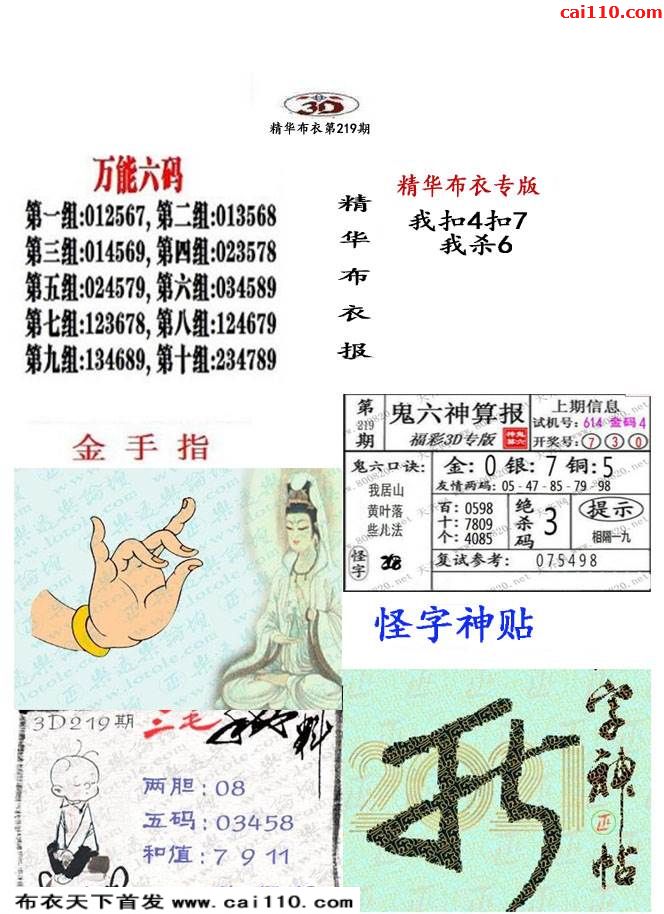 cai110.com
3D
精华布衣第219期
万能六码
第一组:012567, 第二组:013568
第三组:014569, 第四组:023578
第五组:024579, 第六组:034589
第七组:123678, 第八组:124679
第九组:134689, 第十组:234789
精华布衣报
精华布衣专版
我扣4扣7
我杀6
金手指
第219期
鬼六神算报
福彩3D专版
上期信息
试机号: 614 金码 4
开奖号: 7 3 0
鬼六口诀:
我居山
黄叶落
些儿法
怪字
金: 0 银: 7 铜: 5
友情两码: 05-47-85-79-98
百: 0598
十: 7809
个: 4085
绝杀码 3
提示
相隔一九
复试参考: 075498
怪字神贴
3D219期 三毛
两胆: 08
五码: 03458
和值: 7 9 11
2021
字神帖
布衣天下首发 www.cai110.com